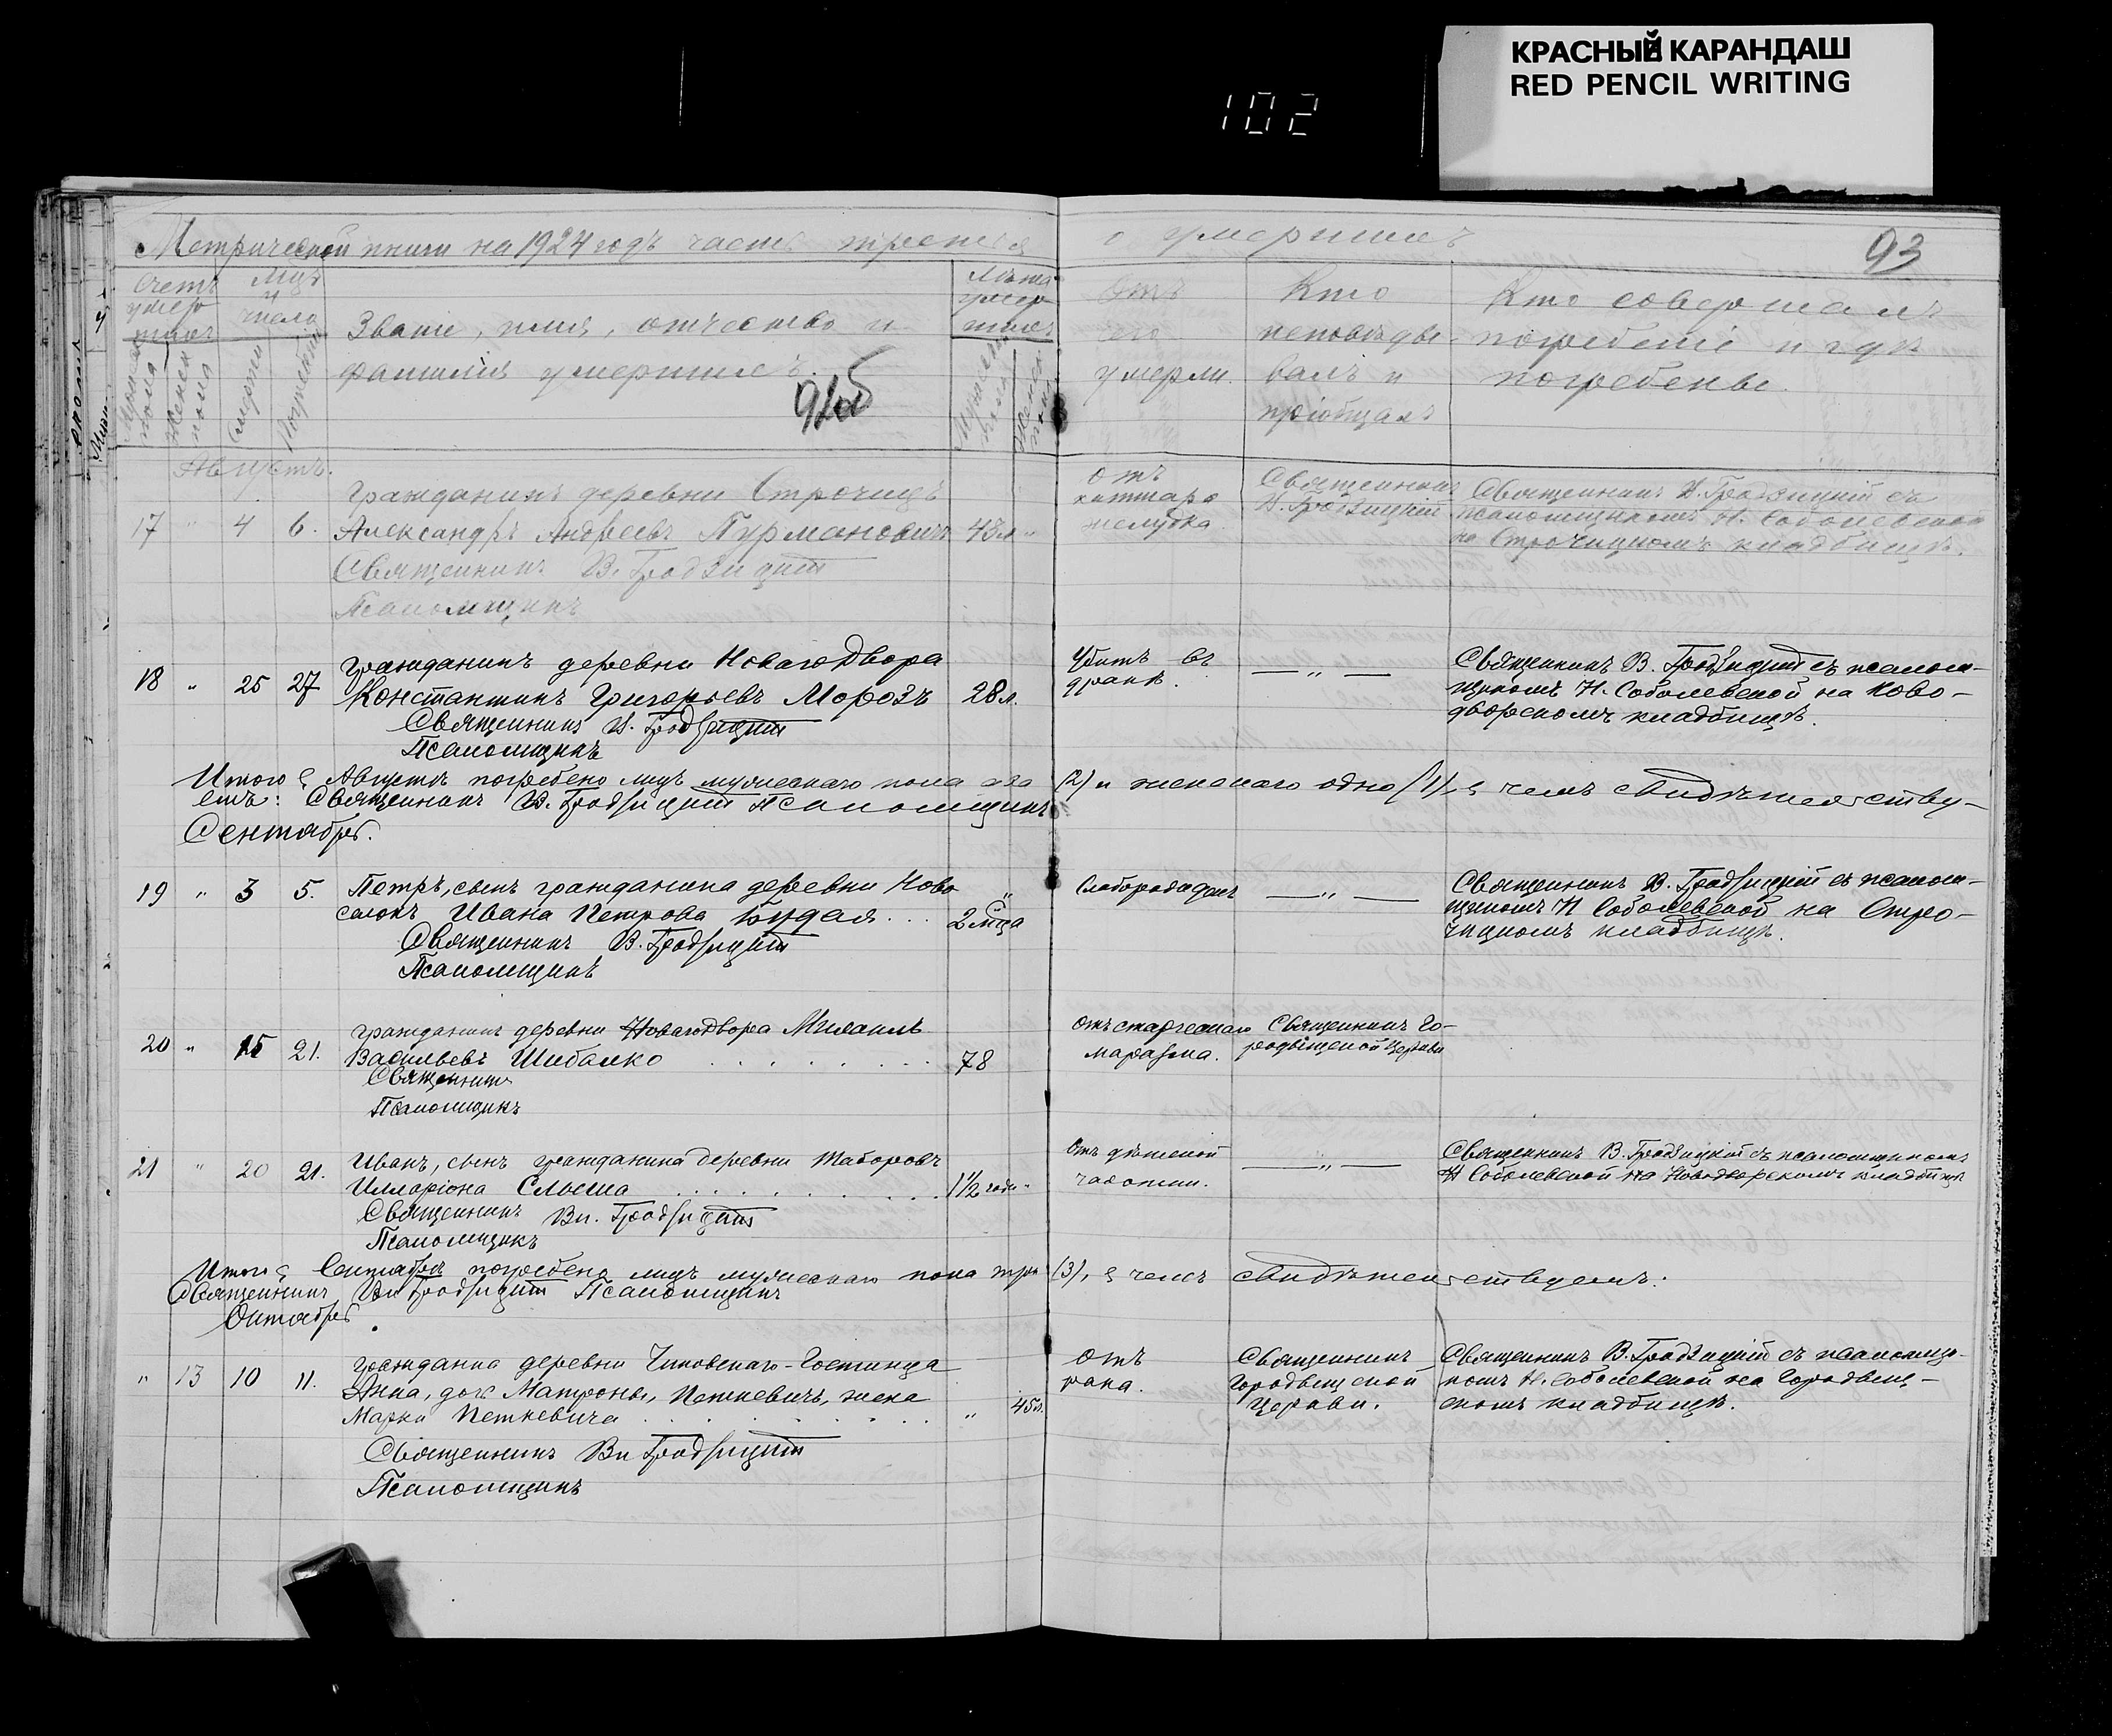 КРАСНЫЙ КАРАНДАШ
RED PENCIL WRITING
102
Метрической книги на 1924 годъ часть третья о умершихъ
93
Счетъ умершихъ
Мужеска пола
Женск пола
Мцъ и число
Смерти
Погребенія
Званіе, имя, отчество и фамилія умершихъ.
Лѣта умершихъ
Мужеска пола
Женск пола
Отъ чего умерли.
Кто исповѣдывалъ и пріобщалъ
Кто совершалъ погребеніе и гдѣ погребены.
Августъ.
17 " 4 6.
Гражданинъ деревни Строчицъ
Александръ Андреевъ Турмановичъ 43 л "
Священникъ В. Гродзицкій
Псаломщикъ
отъ
каттара
желудка
Священникъ
В. Гродзицкій
Священникъ В. Гродзицкій съ
псаломщикомъ Н. Соболевской
на Строчицкомъ кладбищѣ.
18 " 25 27
Гражданинъ деревни Новаго Двора
Константинъ Григорьевъ Морозъ 28 л.
Священникъ В. Гродзицкій
Псаломщикъ
Убитъ въ
дракѣ.
— " —
Священникъ В. Гродзицкій съ псалом-
щикомъ Н. Соболевской на Ново-
дворскомъ кладбищѣ.
Итого въ Августѣ погребено лицъ мужескаго пола два (2) и женскаго одно (1), въ чемъ свидѣтельству-
емъ: Священникъ В. Гродзицкій Псаломщикъ
Сентябрь.
19 " 3 5.
Петръ, сынъ гражданина деревни Ново
селокъ Ивана Петрова Будая . . . 2 мца "
Священникъ В. Гродзицкій
Псаломщикъ
Слаборожденъ
— " —
Священникъ В. Гродзицкій съ псалом-
щикомъ Н Соболевской на Стро-
чицкомъ кладбищѣ.
20 " 15 21.
Гражданинъ деревни Новаго Двора Михаилъ
Васильевъ Шибалко . . . . . . 78
Священникъ
Псаломщикъ
Отъ старческаго
маразма.
Священникъ Го-
родищеской Церкви
21 " 20 21.
Иванъ, сынъ гражданина деревни Таборовъ
Илларіона . . . . . . . . 1 1/2 года "
Священникъ Вл. Гродзицкій
Псаломщикъ
Отъ дѣтской
чахотки.
— " —
Священникъ В. Гродзицкій съ псаломщикомъ
Н Соболевской на Новодворскомъ кладбищѣ
Итого въ Сентябрѣ погребено лицъ мужескаго пола три (3), въ чемъ свидѣтельствуемъ:
Священникъ Вл Гродзицкій Псаломщикъ
Октябрь.
" 13 10 11.
Гражданка деревни
Анна, дочь Матроны, Петкевичъ, жена
Марка Петкевича . . . . . . . " 45 л.
Священникъ Вл Гродзицкій
Псаломщикъ
Отъ
рака.
Священникъ
Церкви.
Священникъ В. Гродзицкій съ псаломщи-
комъ Н. Соболевской на
скомъ кладбищѣ.